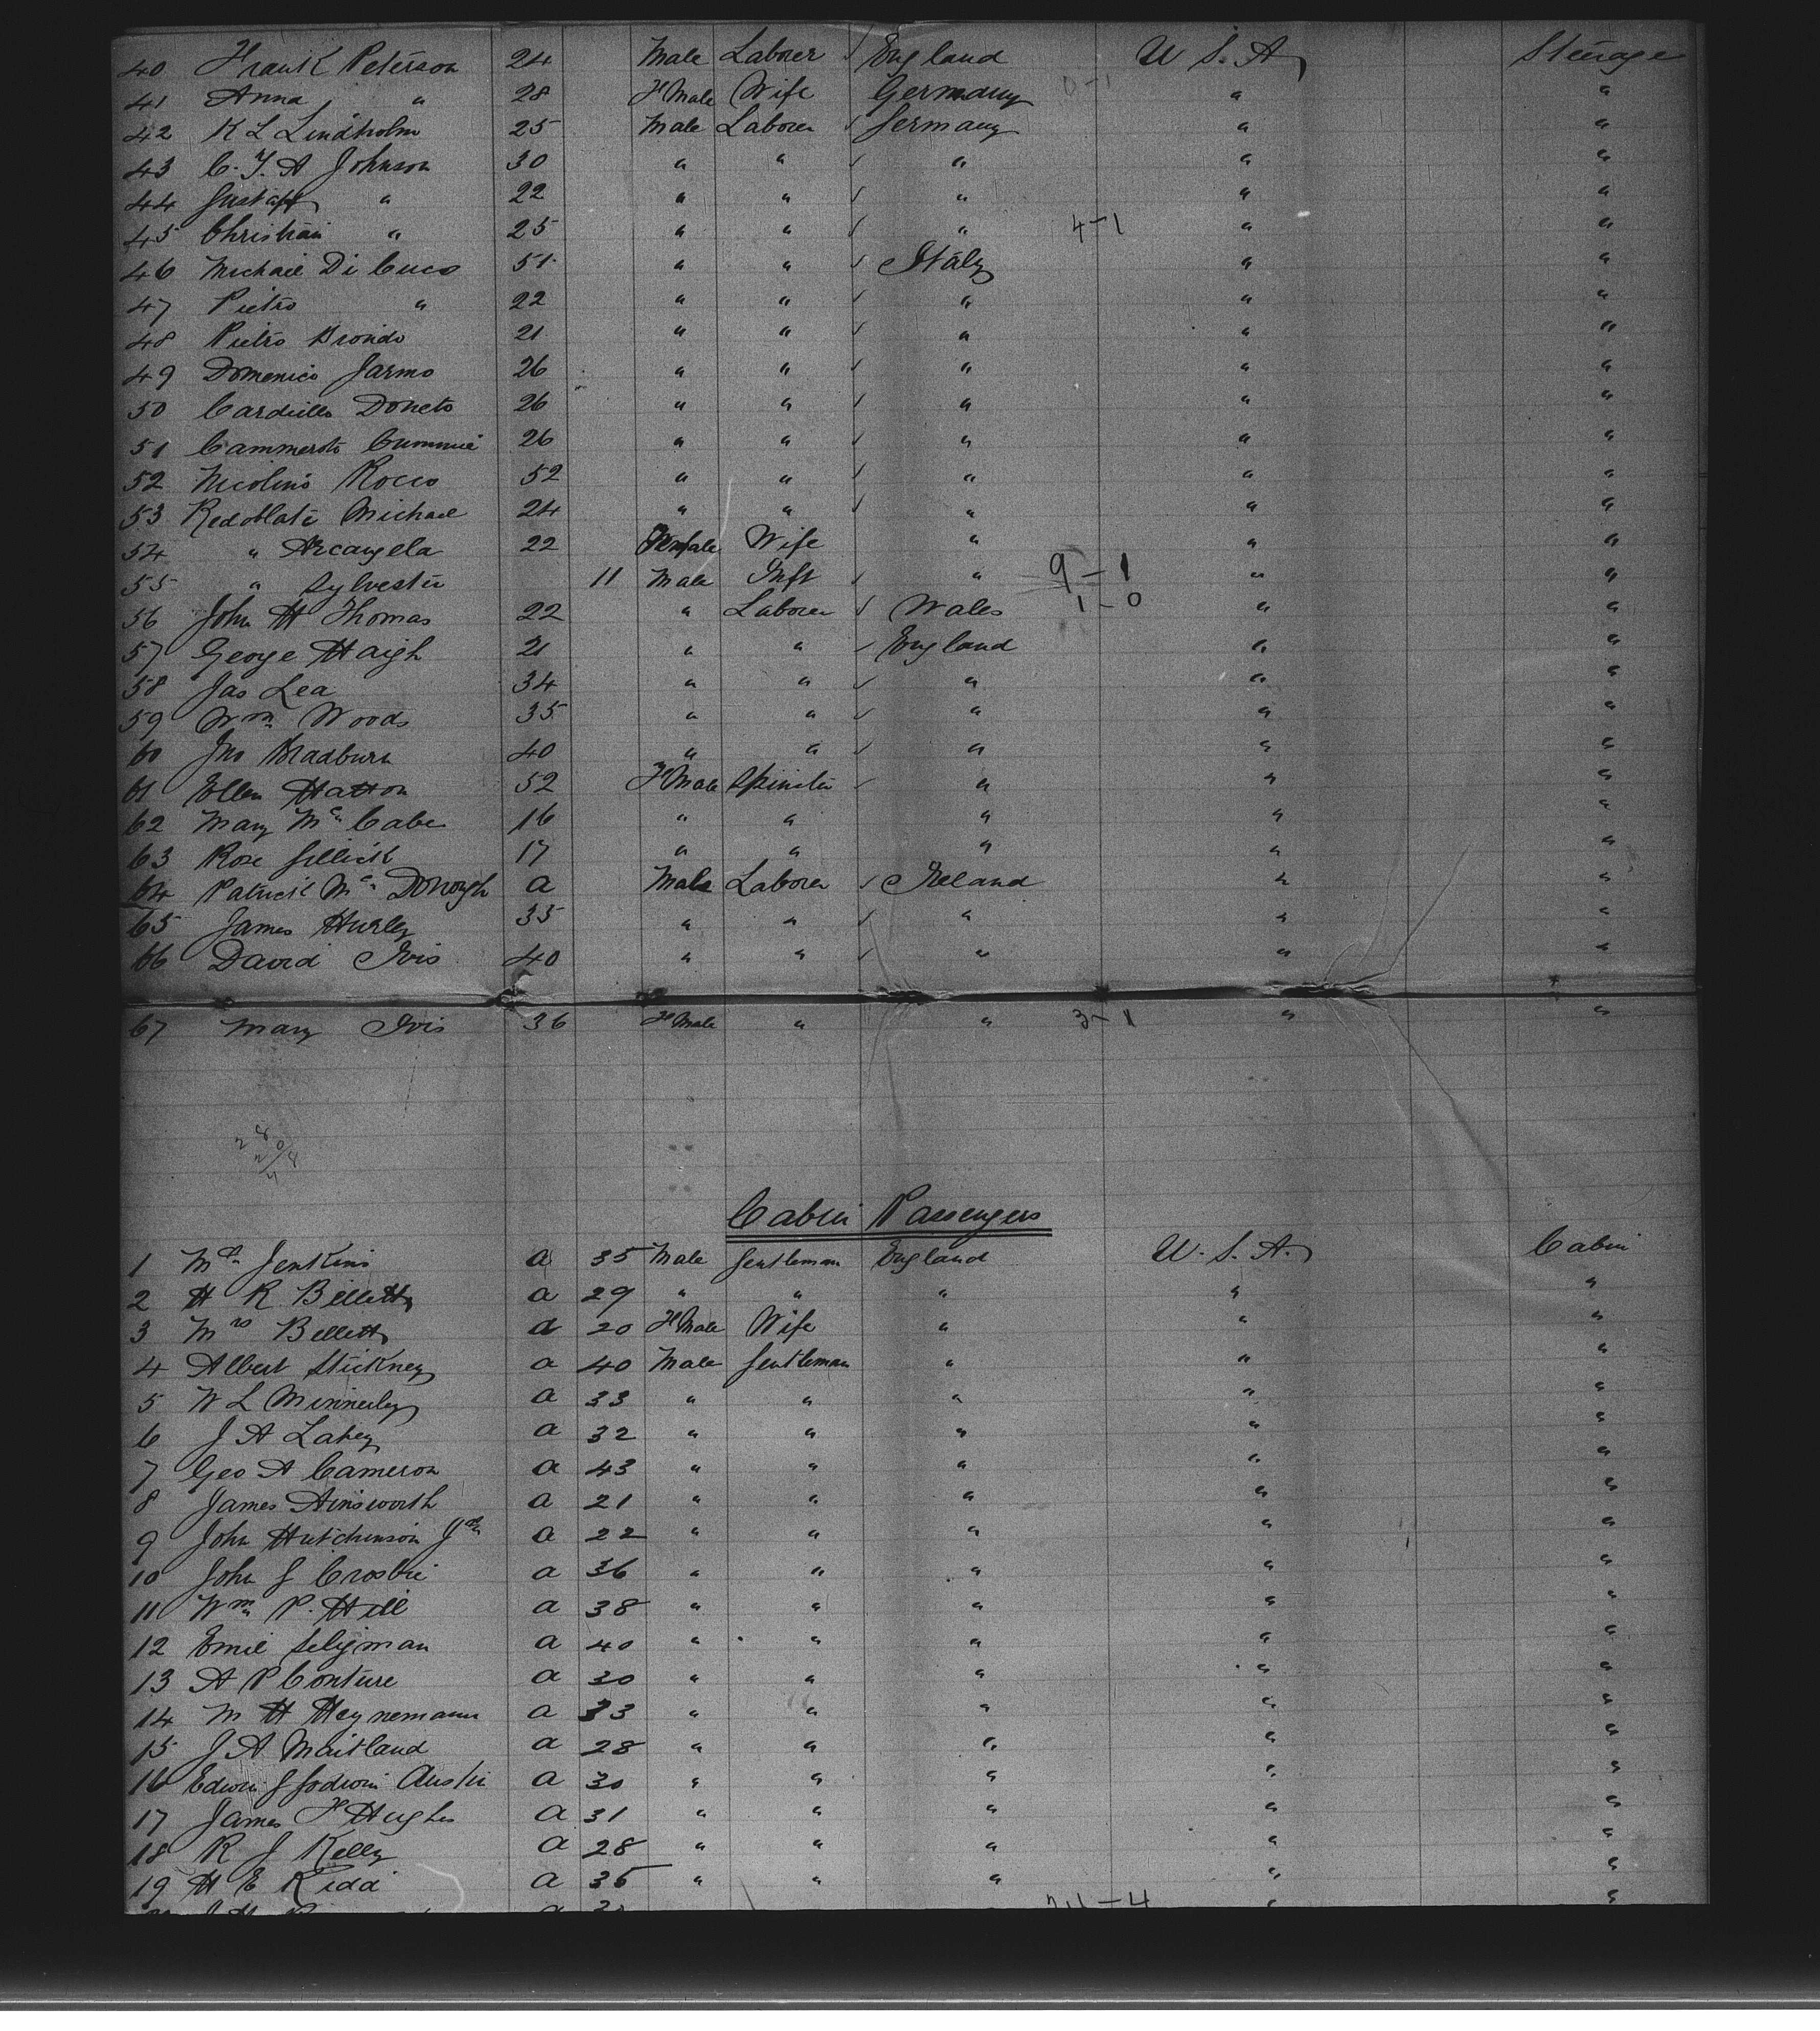 40 Frank Peterson 24 Male Laborer ✓ England U S. A, Steerage
41 Anna " 28 F Male Wife Germany 0-1 " "
42 K L Lindholm 25 Male Laborer ✓ Germany " "
43 C. F. A Johnson 30 " " ✓ " " "
44 Gustaff " 22 " " ✓ " " "
45 Christian " 25 " " ✓ " 4-1 " "
46 Michael Di Cuco 51 " " ✓ Italy " "
47 Pietro " 22 " " ✓ " " "
48 Pietro Brondo 21 " " ✓ " " "
49 Domenico Jarmo 26 " " ✓ " " "
50 Cardillo Doneto 26 " " ✓ " " "
51 Cammeroto 26 " " ✓ " " "
52 Nicolino Rocco 52 " " ✓ " " "
53 Michael 24 " " ✓ " " "
54 " Arcangela 22 Female Wife " " "
55 " Sylvester 11 Male Inft ✓ " 9-1 " "
56 John H Thomas 22 " Laborer ✓ Wales 1-0 " "
57 George Haigh 21 " " ✓ England " "
58 Jas Lea 34 " " ✓ " " "
59 Wm Woods 35 " " ✓ " " "
60 Jno Bradburn 40 " " ✓ " " "
61 Ellen Hatton 52 F Male Spinster ✓ " " "
62 Mary Mc Cabe 16 " " " " "
63 Rose Gillick 17 " " " " "
64 Patrick Mc Donough a Male Laborer ✓ Ireland " "
65 James Hurley 35 " " ✓ " " "
66 David Ivis 40 " " ✓ " " "
67 Mary Ivis 36 F Male " " 3-1 " "
Cabin Passengers
1 Mr Jenkins a 35 Male Gentleman England U. S. A. Cabin
2 H R Billett a 29 " " " " "
3 Mrs Billett a 20 F Male Wife " " "
4 Albert Stickney a 40 Male Gentleman " " "
5 W L Minnerley a 33 " " " " "
6 J A Lahey a 32 " " " " "
7 Geo A Cameron a 43 " " " " "
8 James Ainsworth a 21 " " " " "
9 John Hutchinson Jr a 22 " " " " "
10 John J Crosbie a 36 " " " " "
11 Wm P. Hill a 38 " " " " "
12 Emil Seligman a 40 " " " " "
13 A P Conture a 30 " " " " "
14 M H Heynemann a 33 " " " " "
15 J A Maitland a 28 " " " " "
16 Edwin G Godwin Austin a 30 " " " " "
17 James F Hughes a 31 " " " " "
18 R J Kelly a 28 " " " " "
19 H E Kidd a 35 " " " " "